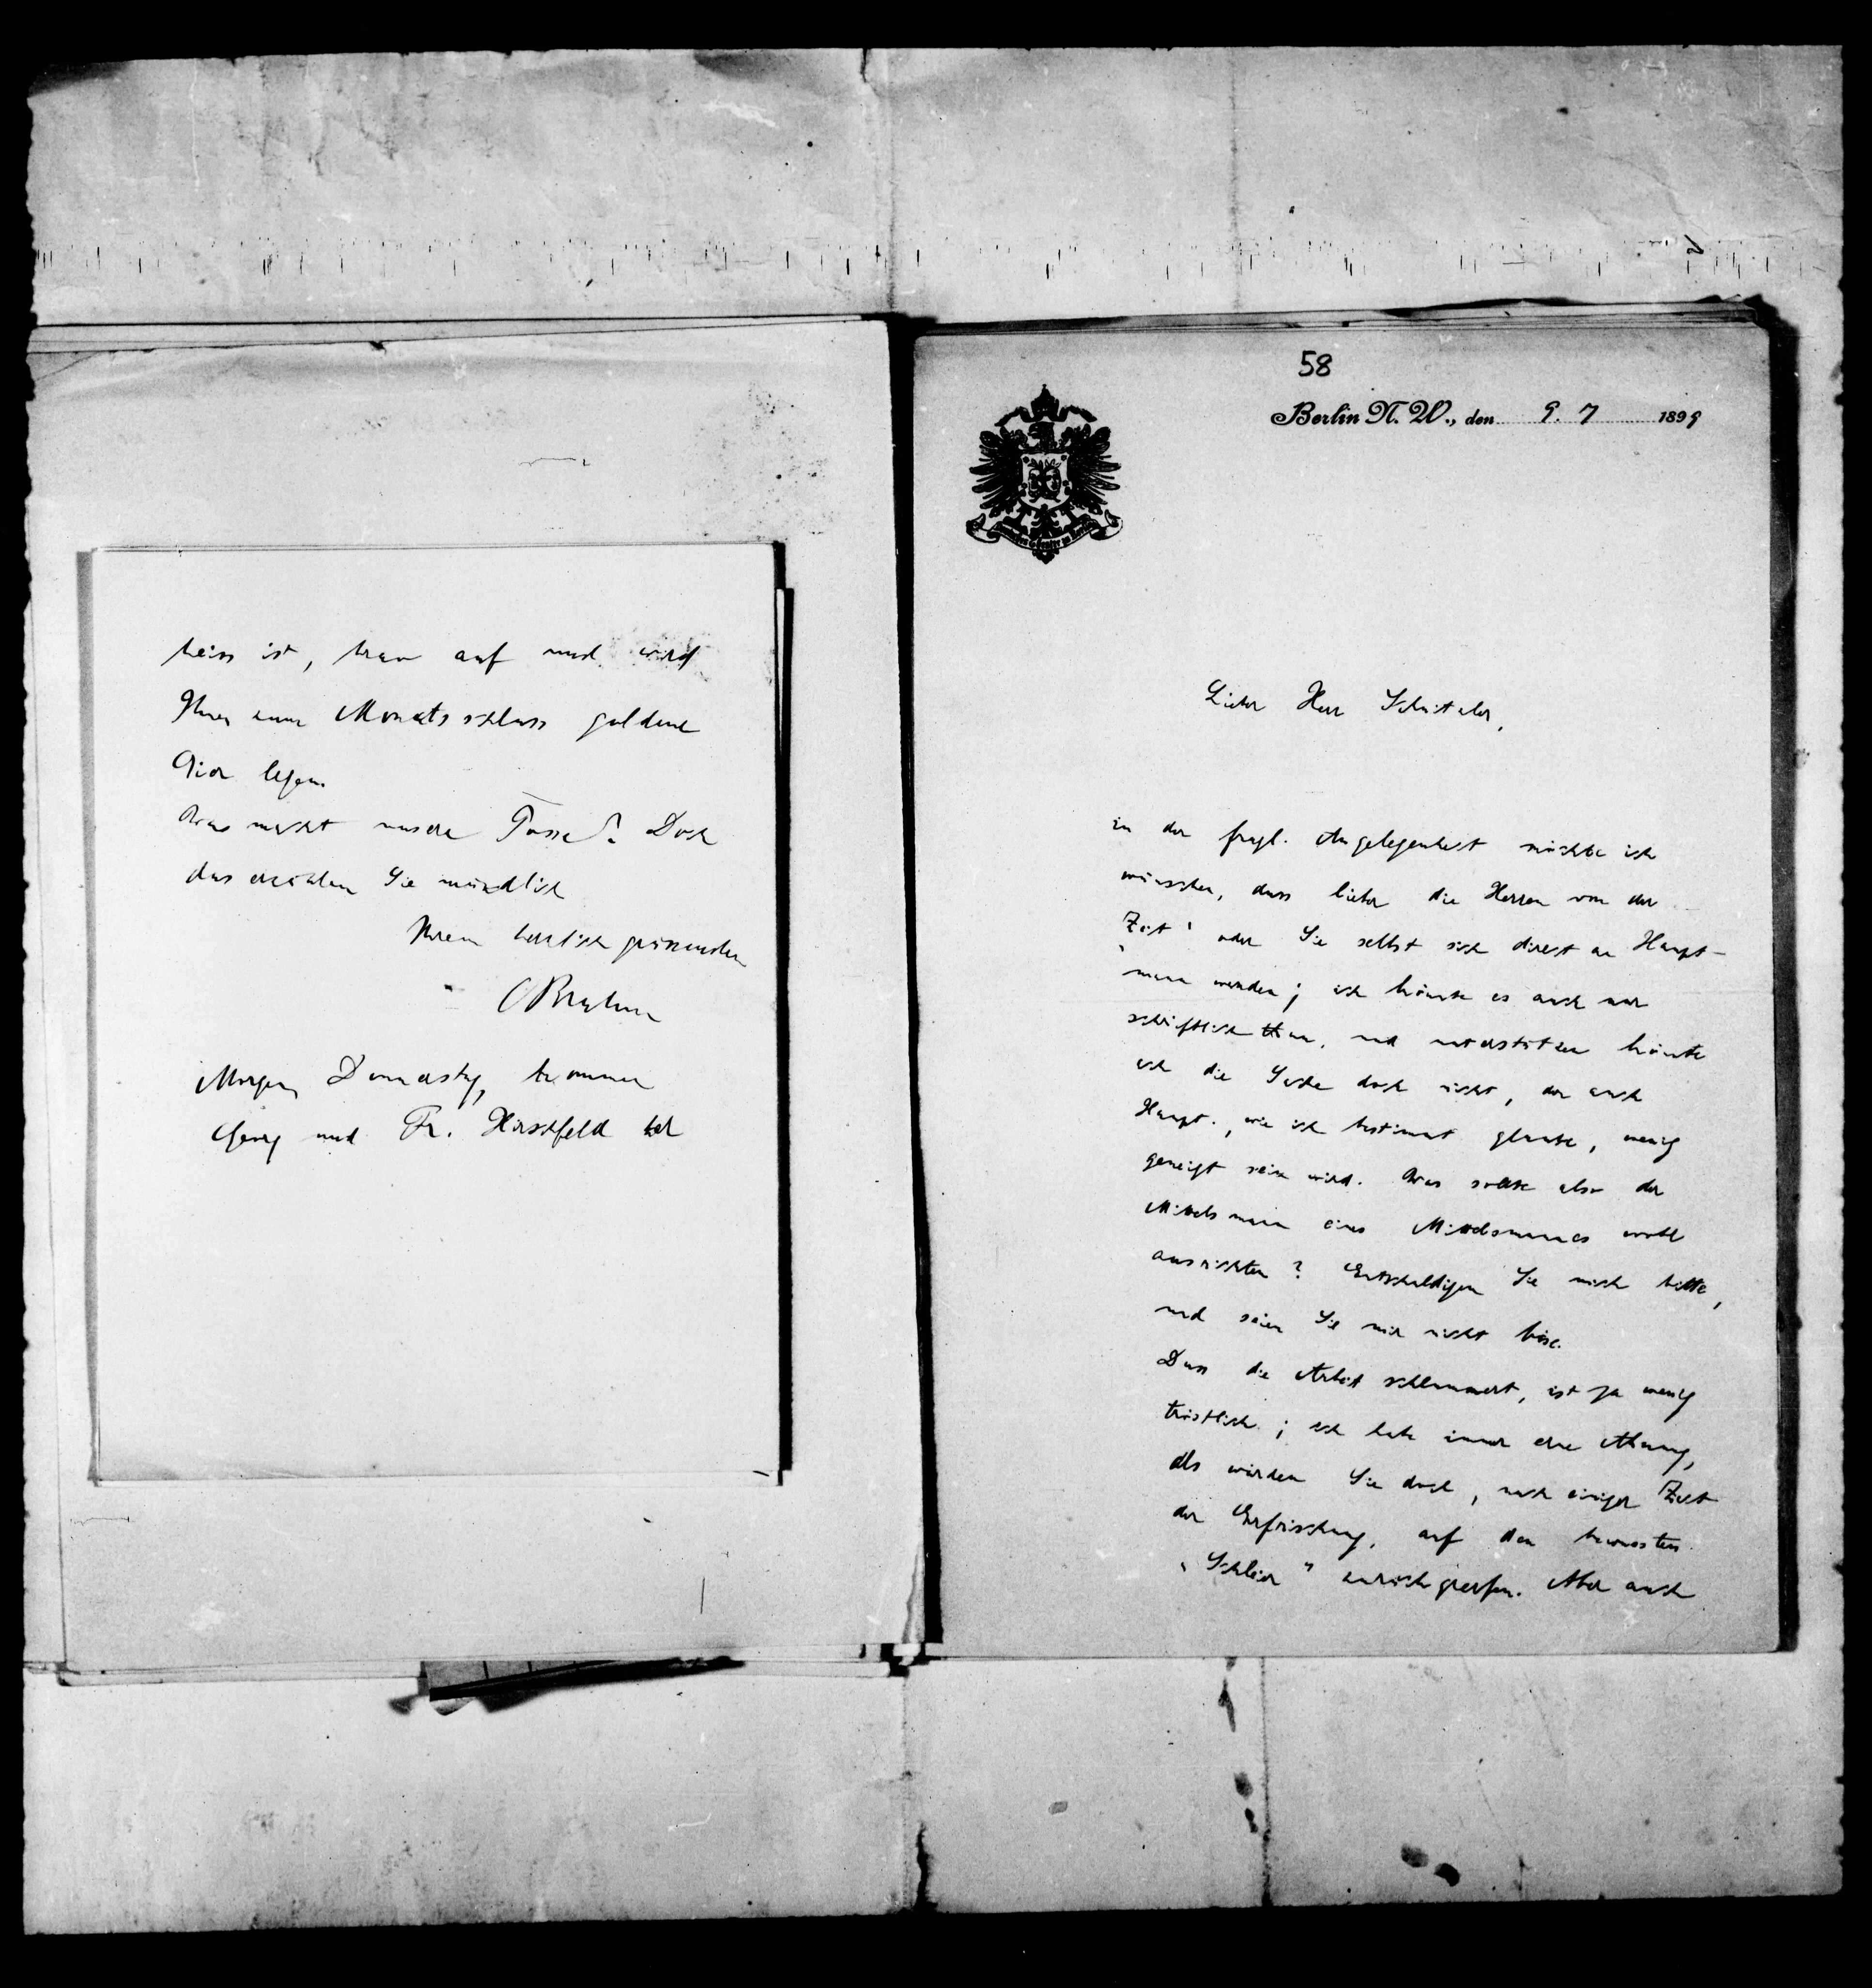 heiss ist, brav auf und wird
Ihnen zum Monatsschluss goldene
Eier legen.
Was macht unsere Tasse? Doch
das erzählen Sie mündlich
Ihrem herzlich grüssenden
OBrahm
Morgen, Donnerstg, kommen
Georg und Fr. Hirschfeld her
58
Berlin N. W., den 9. 7 1899
Lieber Herr Schnitzler,
in der fragl. Angelegenheit möchte ich
wünschen, dass lieber die Herren von der
„Zeit“ oder Sie selbst sich direkt an Haupt-
mann wenden; ich könnte es auch nur
schriftlich thun, und unterstützen könnte
ich die Sache doch nicht, der auch
Haupt., wie ich bestimmt glaube, wenig
geneigt sein wird. Was sollte also der
Mittelsmann eines Mittelsmannes wohl
ausrichten? Entschuldigen Sie mich bitte,
und seien Sie mir nicht böse.
Dass die Arbeit schlummert, ist ja wenig
tröstlich; ich habe immer eine Ahnung,
als würden Sie doch, nach einiger Zeit
der Erfrischung, auf den bewussten
„Schleier“ zurückgreifen. Aber auch